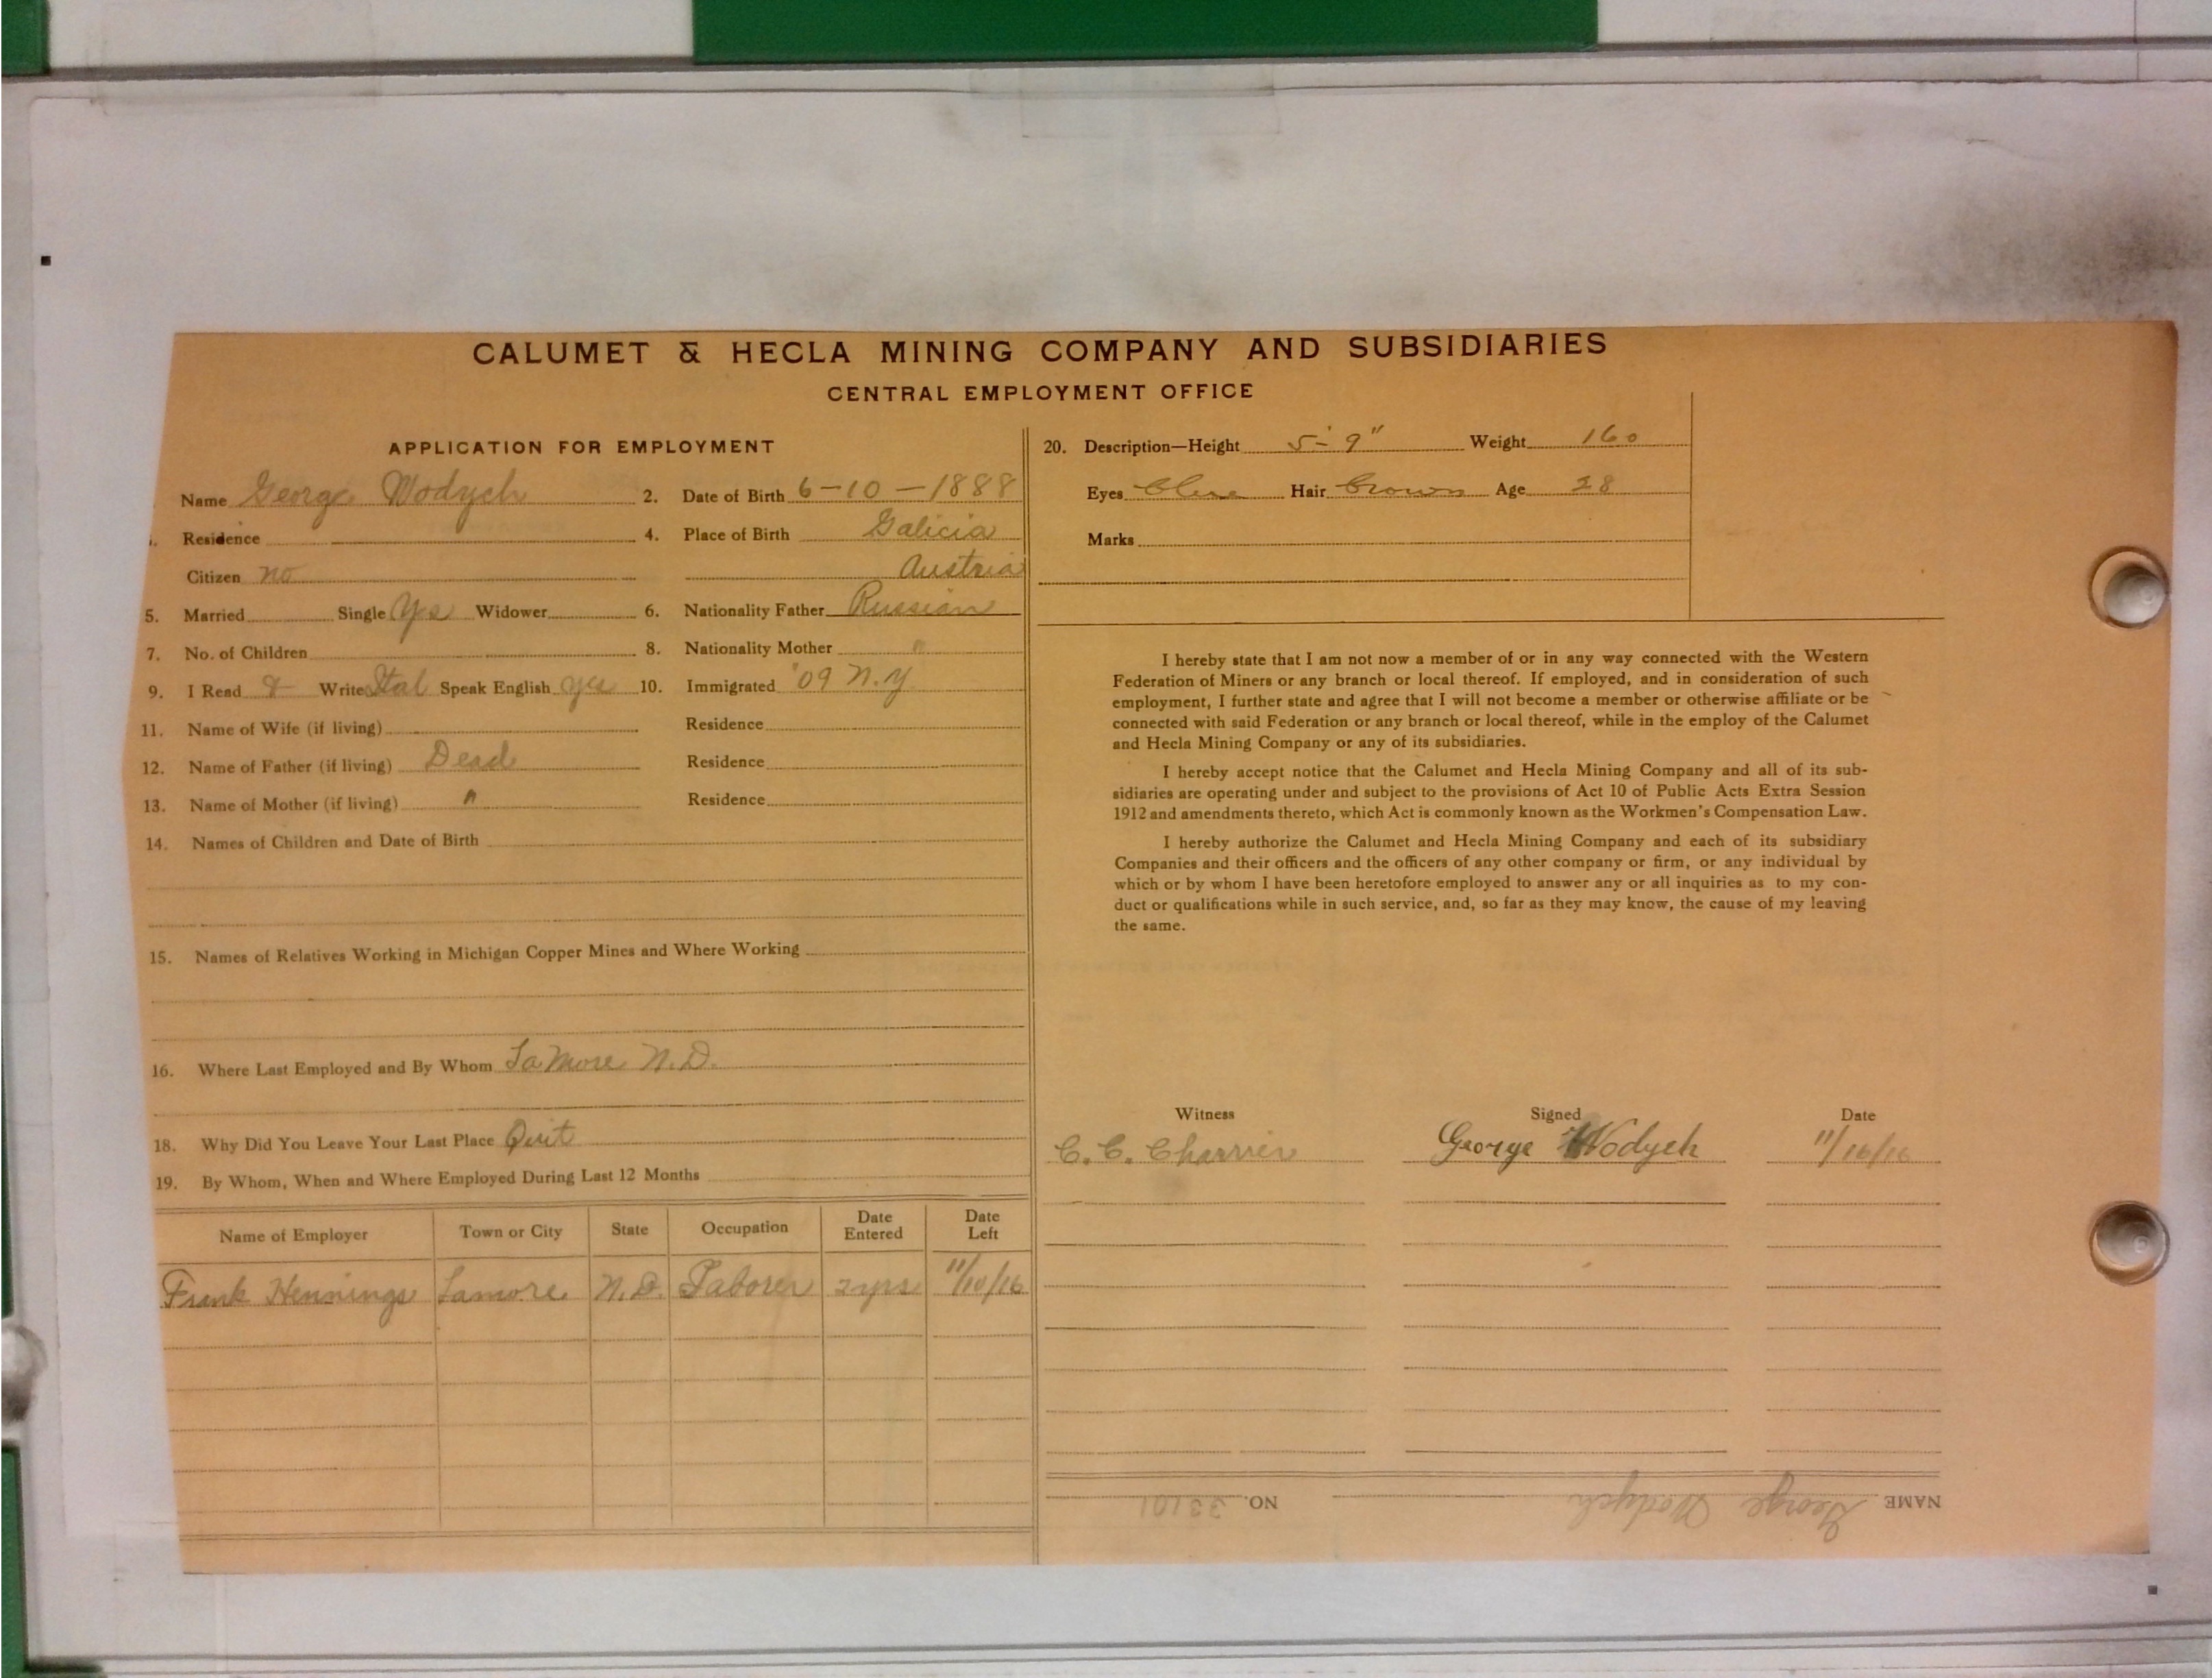 CALUMET & HECLA MINING COMPANY AND SUBSIDIARIES
CENTRAL EMPLOYMENT OFFICE
APPLICATION FOR EMPLOYMENT
Name George Wodych 2. Date of Birth 6-10-1888
Residence 4. Place of Birth Galicia
Citizen no Austria
5. Married Single Yes Widower 6. Nationality Father Russian
7. No. of Children 8. Nationality Mother "
9. I Read & Write Ital Speak English yes 10. Immigrated '09 N.Y
11. Name of Wife (if living) Residence
12. Name of Father (if living) Dead Residence
13. Name of Mother (if living) " Residence
14. Names of Children and Date of Birth
15. Names of Relatives Working in Michigan Copper Mines and Where Working
16. Where Last Employed and By Whom LaMore N.D.
18. Why Did You Leave Your Last Place Quit
19. By Whom, When and Where Employed During Last 12 Months
Name of Employer Town or City State Occupation Date Entered Date Left
Frank Hennings Lamore N.D. Laborer 2yrs 11/10/16
20. Description—Height 5'-9" Weight 160
Eyes Blue Hair Brown Age 28
Marks
I hereby state that I am not now a member of or in any way connected with the Western
Federation of Miners or any branch or local thereof. If employed, and in consideration of such
employment, I further state and agree that I will not become a member or otherwise affiliate or be
connected with said Federation or any branch or local thereof, while in the employ of the Calumet
and Hecla Mining Company or any of its subsidiaries.
I hereby accept notice that the Calumet and Hecla Mining Company and all of its sub-
sidiaries are operating under and subject to the provisions of Act 10 of Public Acts Extra Session
1912 and amendments thereto, which Act is commonly known as the Workmen's Compensation Law.
I hereby authorize the Calumet and Hecla Mining Company and each of its subsidiary
Companies and their officers and the officers of any other company or firm, or any individual by
which or by whom I have been heretofore employed to answer any or all inquiries as to my con-
duct or qualifications while in such service, and, so far as they may know, the cause of my leaving
the same.
Witness Signed Date
C. C. Charrier George Wodych 11/16/16
NAME George Wodych NO. 33101